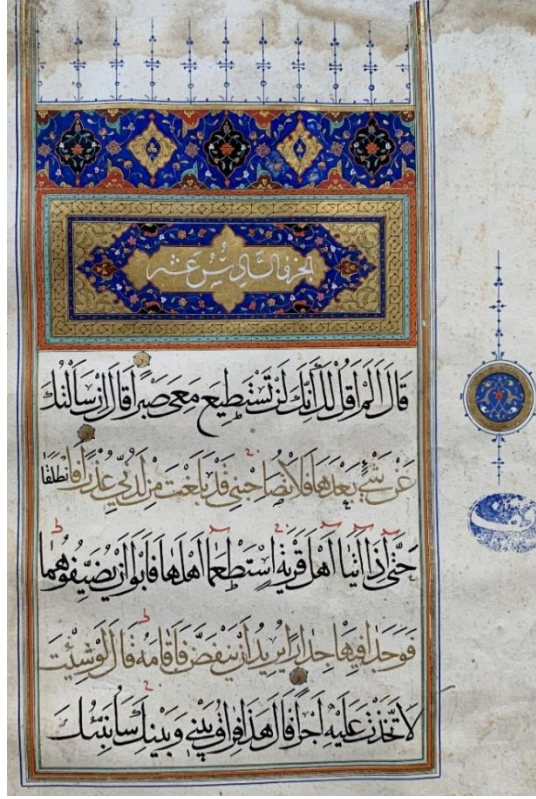 الجزء السادس عشر
قَالَ أَلَمْ أَقُلْ لَكَ إِنَّكَ لَنْ تَسْتَطِيعَ مَعِيَ صَبْرًا قَالَ إِنْ سَأَلْتُكَ
عَنْ شَيْءٍ بَعْدَهَا فَلَا تُصَاحِبْنِي قَدْ بَلَغْتَ مِنْ لَدُنِّي عُذْرًا فَانْطَلَقَا
حَتَّى إِذَا أَتَيَا أَهْلَ قَرْيَةٍ اسْتَطْعَمَا أَهْلَهَا فَأَبَوْا أَنْ يُضَيِّفُوهُمَا
فَوَجَدَا فِيهَا جِدَارًا يُرِيدُ أَنْ يَنْقَضَّ فَأَقَامَهُ قَالَ لَوْ شِئْتَ
لَاتَّخَذْتَ عَلَيْهِ أَجْرًا قَالَ هَذَا فِرَاقُ بَيْنِي وَبَيْنِكَ سَأُنَبِّئُكَ
وقف